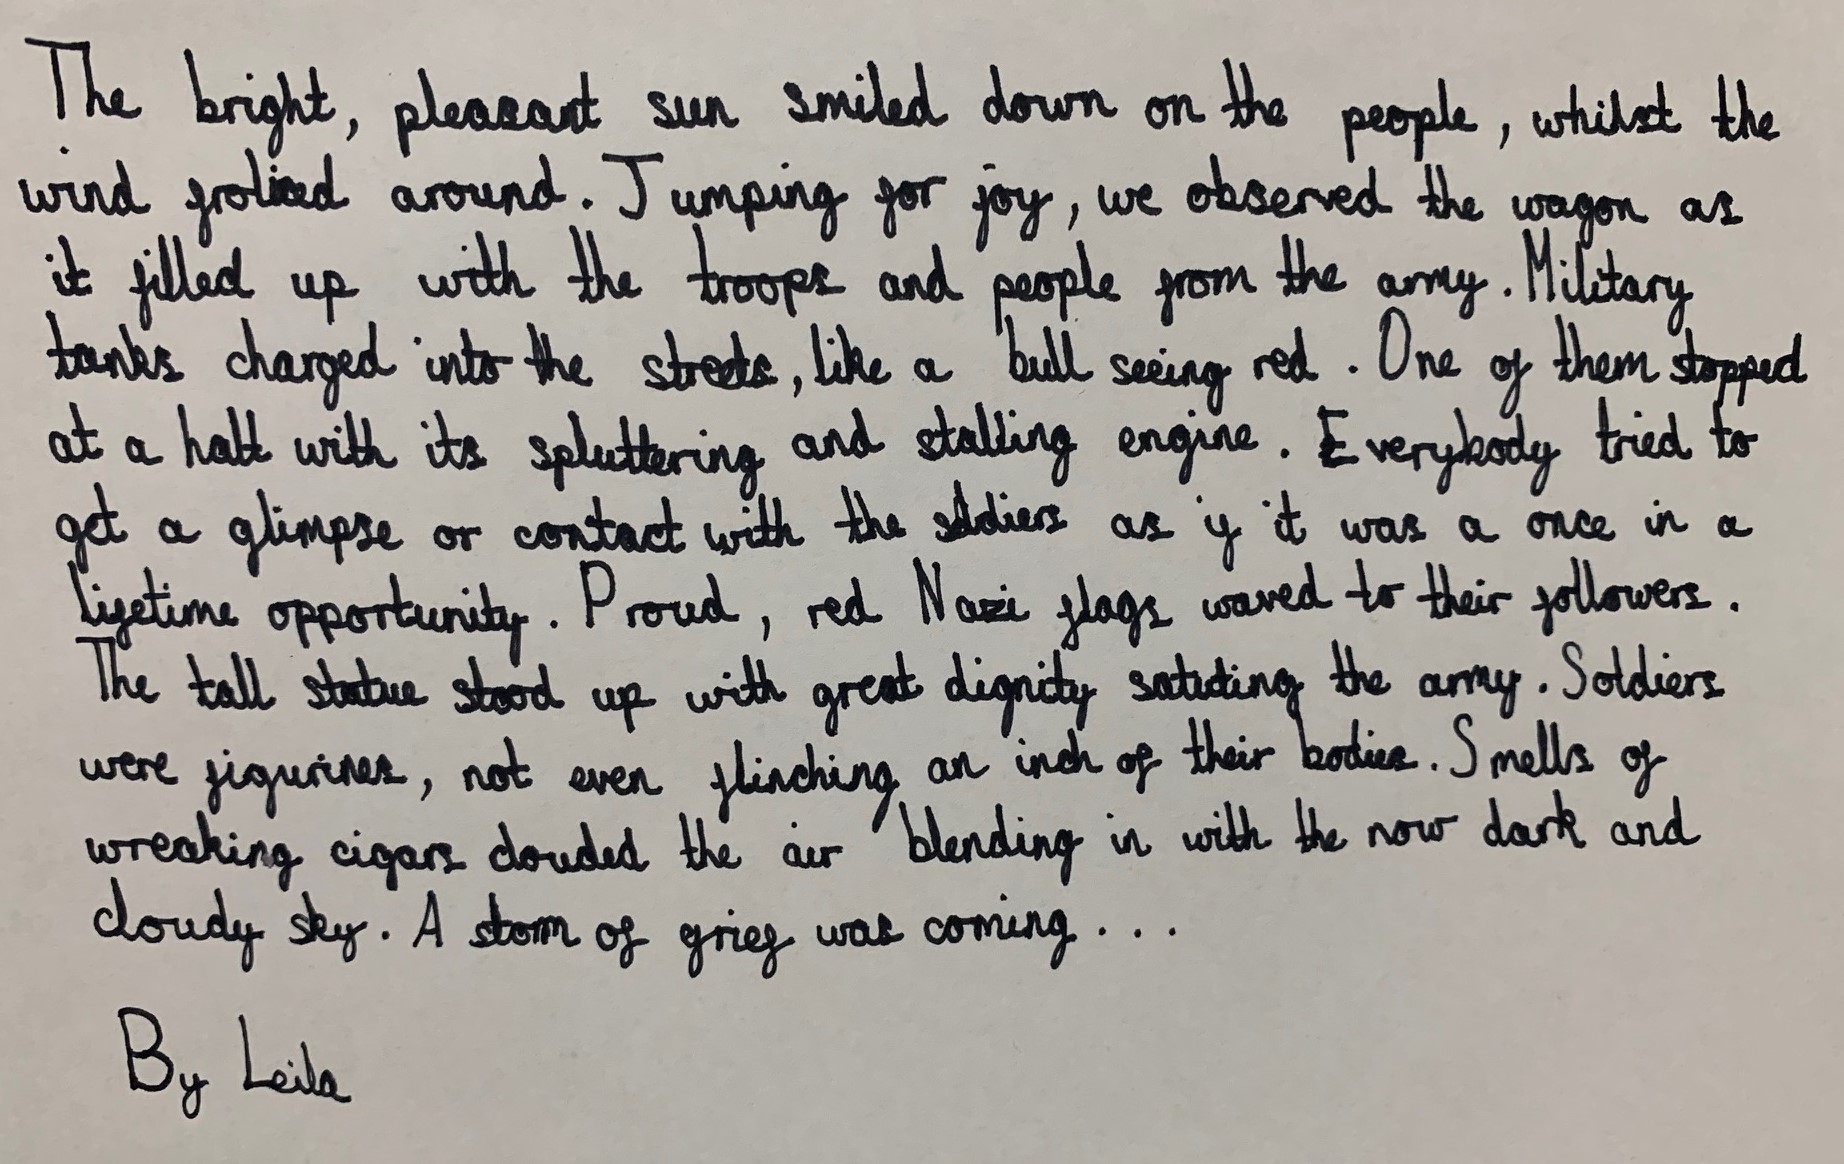 The bright, pleasant sun smiled down on the people, whilst the
wind froliced around. Jumping for joy, we observed the wagon as
it filled up with the troops and people from the army. Military
tanks charged into the streets, like a bull seeing red. One of them stopped
at a halt with its spluttering and stalling engine. Everybody tried to
get a glimpse or contact with the soldiers as if it was a once in a
lifetime opportunity. Proud, red Nazi flags waved to their followers.
The tall statue stood up with great dignity saluting the army. Soldiers
were figurines, not even flinching an inch of their bodies. Smells of
wreaking cigars clouded the air, blending in with the now dark and
cloudy sky. A storm of grief was coming...
By Leila